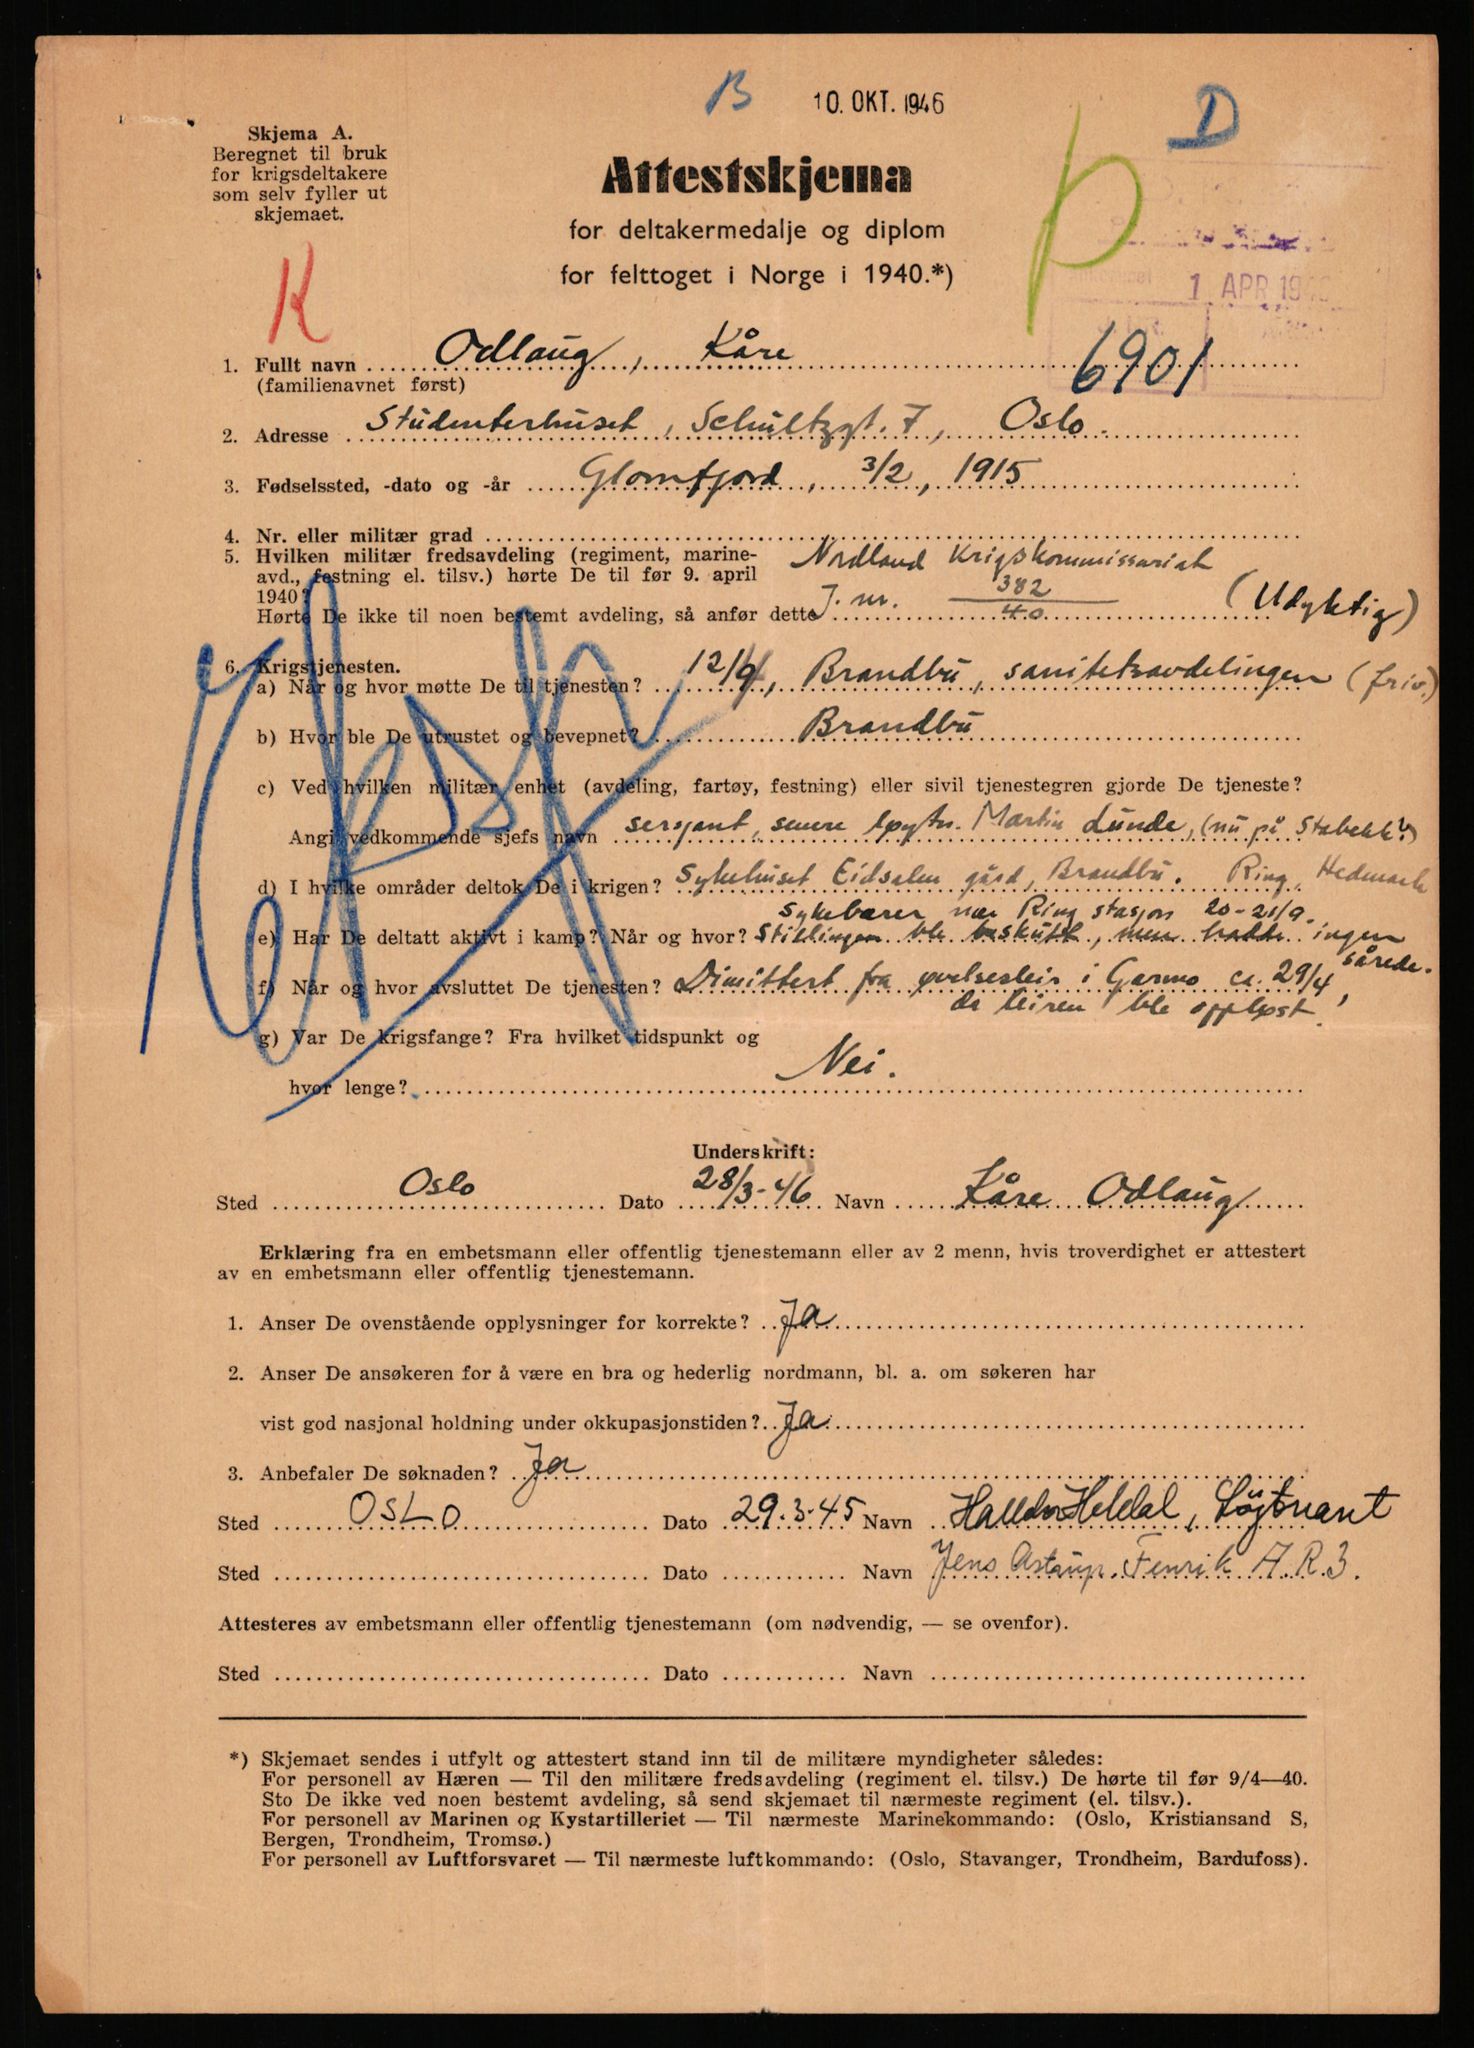 B 10. OKT. 1946 D
Skjema A.
Beregnet til bruk
for krigsdeltakere
som selv fyller ut
skjemaet.
Attestskjema
for deltakermedalje og diplom
for felttoget i Norge i 1940.*)
K
1 APR 194
1. Fullt navn Odlaug, Kåre 6901
(familienavnet først)
2. Adresse Studenterhuset, Schultzgt. 7, Oslo.
3. Fødselssted, -dato og -år Glomfjord, 3/2, 1915
4. Nr. eller militær grad
5. Hvilken militær fredsavdeling (regiment, marine- Nordland Krigskommissariat
avd., festning el. tilsv.) hørte De til før 9. april
1940?
Hørte De ikke til noen bestemt avdeling, så anfør dette J. nr. 382/40 (Udyktig)
6. Krigstjenesten.
a) Når og hvor møtte De til tjenesten? 12/4, Brandbu, sanitetsavdelingen (friv.)
b) Hvor ble De utrustet og bevepnet? Brandbu
c) Ved hvilken militær enhet (avdeling, fartøy, festning) eller sivil tjenestegren gjorde De tjeneste?
Angi vedkommende sjefs navn sersjant, senere løytn. Martin Lunde, (nu på Stabekk?)
d) I hvilke områder deltok De i krigen? Sykehuset Eidsalen gård, Brandbu. Ring, Hedmark
Sykebærer nær Ring stasjon 20-21/9.
e) Har De deltatt aktivt i kamp? Når og hvor? Stillingen ble beskutt, men hadde ingen
sårede.
f) Når og hvor avsluttet De tjenesten? Dimittert fra øvelsesleir i Garmo ca. 29/4,
da leiren ble oppløst.
g) Var De krigsfange? Fra hvilket tidspunkt og
hvor lenge? Nei.
Underskrift:
Sted Oslo Dato 28/3-46 Navn Kåre Odlaug
Erklæring fra en embetsmann eller offentlig tjenestemann eller av 2 menn, hvis troverdighet er attestert
av en embetsmann eller offentlig tjenestemann.
1. Anser De ovenstående opplysninger for korrekte? Ja
2. Anser De ansøkeren for å være en bra og hederlig nordmann, bl. a. om søkeren har
vist god nasjonal holdning under okkupasjonstiden? Ja
3. Anbefaler De søknaden? Ja
Sted OSLO Dato 29.3.45 Navn Halldor Heldal, Løjtnant
Sted Dato Navn Jens Astrup. Fenrik A.R.3.
Attesteres av embetsmann eller offentlig tjenestemann (om nødvendig, — se ovenfor).
Sted Dato Navn
*) Skjemaet sendes i utfylt og attestert stand inn til de militære myndigheter således:
For personell av Hæren — Til den militære fredsavdeling (regiment el. tilsv.) De hørte til før 9/4—40.
Sto De ikke ved noen bestemt avdeling, så send skjemaet til nærmeste regiment (el. tilsv.).
For personell av Marinen og Kystartilleriet — Til nærmeste Marinekommando: (Oslo, Kristiansand S,
Bergen, Trondheim, Tromsø.)
For personell av Luftforsvaret — Til nærmeste luftkommando: (Oslo, Stavanger, Trondheim, Bardufoss).